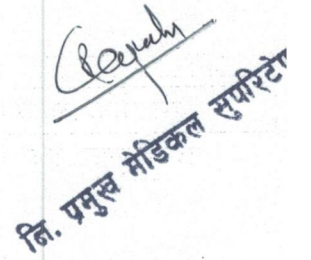 नि. प्रमुख मेडिकल सुपरिटे